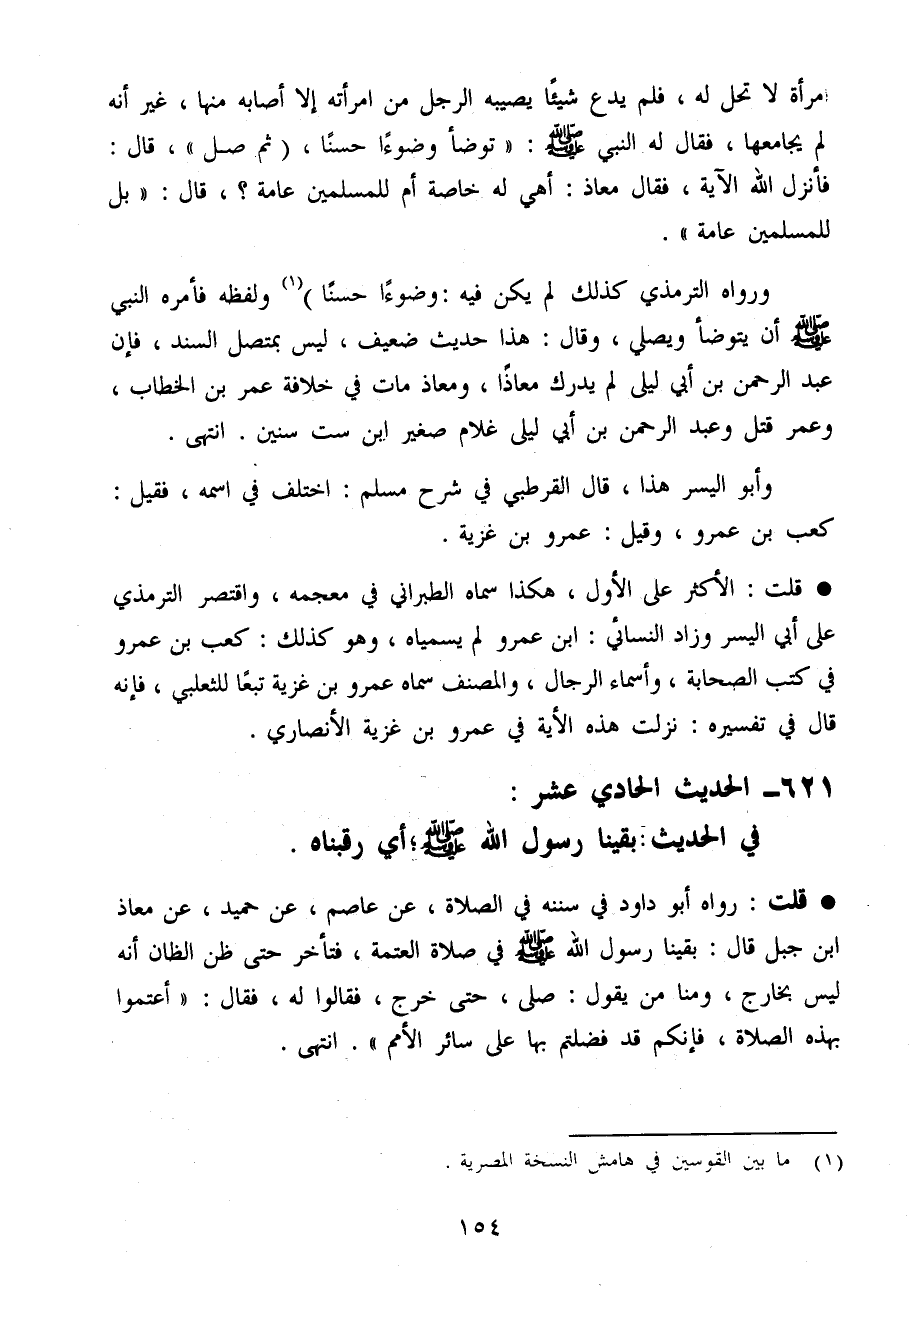 امرأة لا تحل له ، فلم يدع شيئًا يصيبه الرجل من امرأته إلا أصابه منها ، غير أنه
لم يجامعها ، فقال له النبي ﷺ : « توضأ وضوءًا حسنًا ، ( ثم صل » ، قال :
فأنزل الله الآية ، فقال معاذ : أهي له خاصة أم للمسلمين عامة ؟ ، قال : « بل
للمسلمين عامة » .
ورواه الترمذي كذلك لم يكن فيه : وضوءًا حسنًا )(١) ولفظه فأمره النبي
ﷺ أن يتوضأ ويصلي ، وقال : هذا حديث ضعيف ، ليس بمتصل السند ، فإن
عبد الرحمن بن أبي ليلى لم يدرك معاذًا ، ومعاذ مات في خلافة عمر بن الخطاب ،
وعمر قتل وعبد الرحمن بن أبي ليلى غلام صغير ابن ست سنين . انتهى .
وأبو اليسر هذا ، قال القرطبي في شرح مسلم : اختلف في اسمه ، فقيل :
كعب بن عمرو ، وقيل : عمرو بن غزية .
● قلت : الأكثر على الأول ، هكذا سماه الطبراني في معجمه ، واقتصر الترمذي
على أبي اليسر وزاد النسائي : ابن عمرو لم يسمياه ، وهو كذلك : كعب بن عمرو
في كتب الصحابة ، وأسماء الرجال ، والمصنف سماه عمرو بن غزية تبعًا للثعلبي ، فإنه
قال في تفسيره : نزلت هذه الأية في عمرو بن غزية الأنصاري .
٦٢١ـ الحديث الحادي عشر :
في الحديث : بقينا رسول الله ﷺ ؛ أي رقبناه .
● قلت : رواه أبو داود في سننه في الصلاة ، عن عاصم ، عن حميد ، عن معاذ
ابن جبل قال : بقينا رسول الله ﷺ في صلاة العتمة ، فتأخر حتى ظن الظان أنه
ليس بخارج ، ومنا من يقول : صلى ، حتى خرج ، فقالوا له ، فقال : « أعتموا
بهذه الصلاة ، فإنكم قد فضلتم بها على سائر الأمم » . انتهى .
(١) ما بين القوسين في هامش النسخة المصرية .
١٥٤